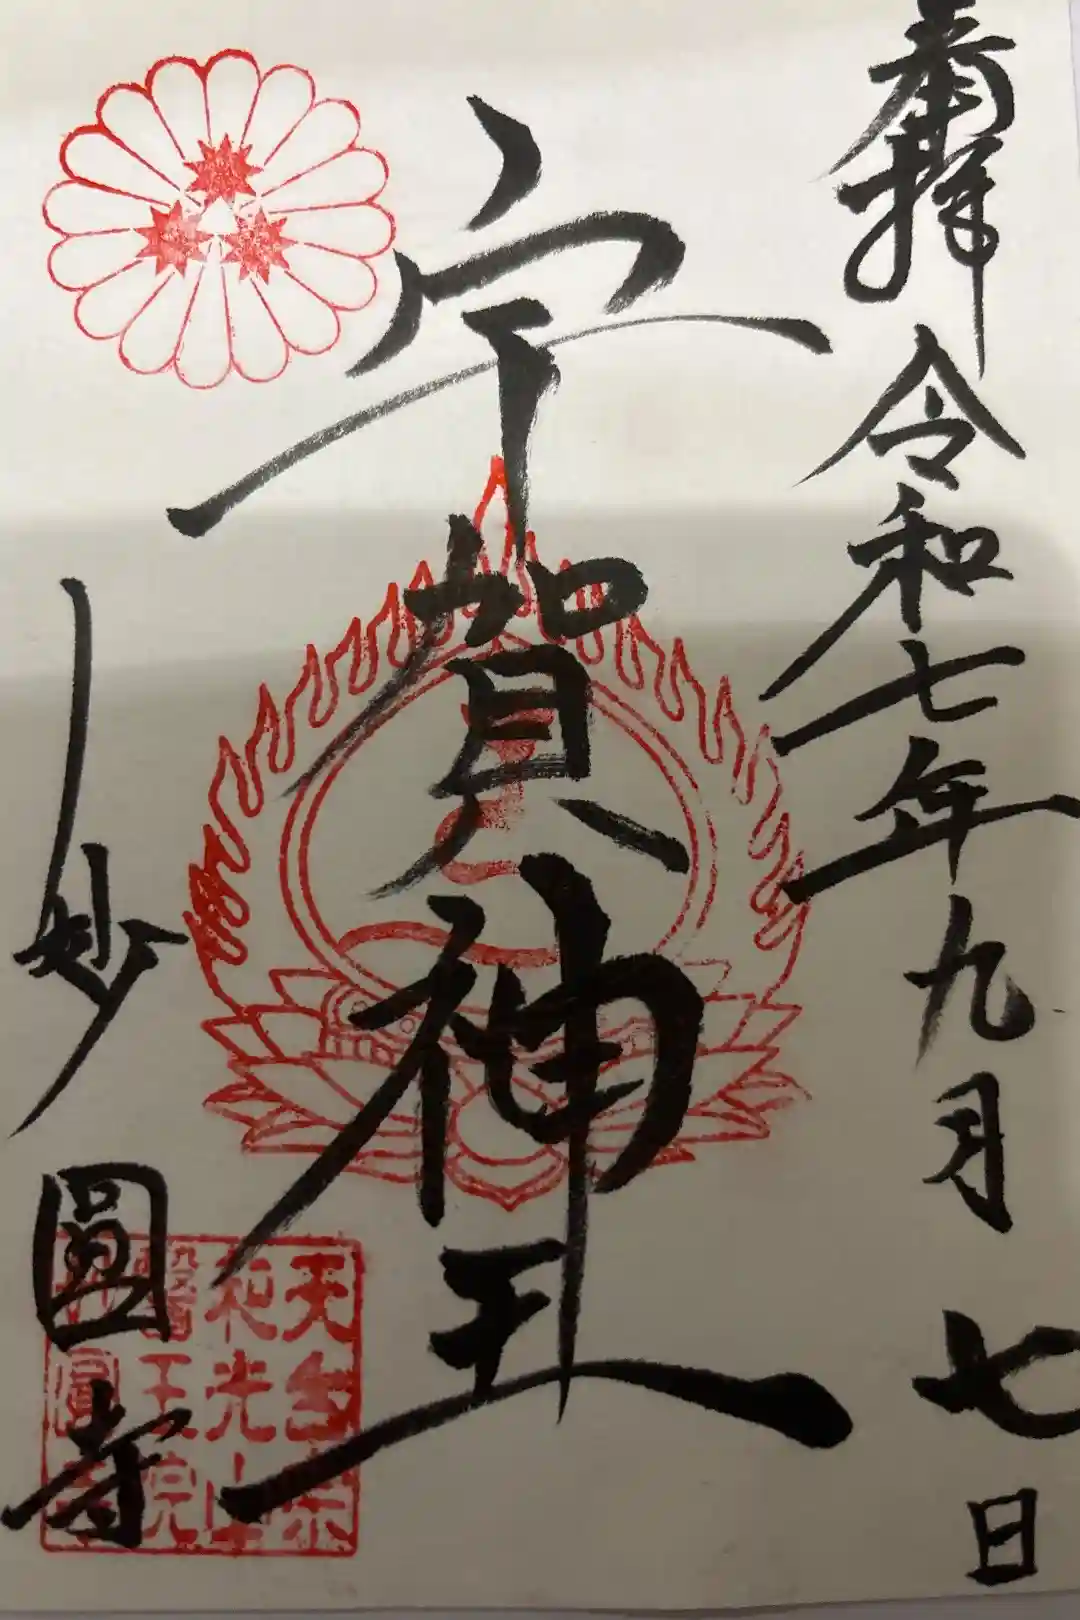 奉拝 令和七年九月七日
宇賀神王
妙圓寺
天台宗
和光山
醫王院
妙圓寺